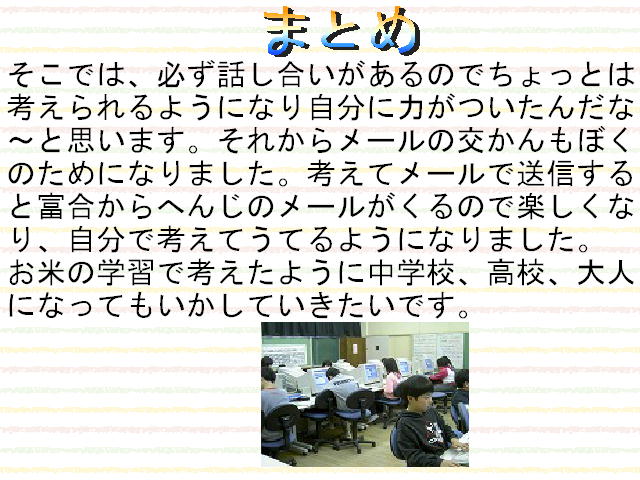 まとめ
そこでは、必ず話し合いがあるのでちょっとは
考えられるようになり自分に力がついたんだな
～と思います。それからメールの交かんもぼく
のためになりました。考えてメールで送信する
と富合からへんじのメールがくるので楽しくな
り、自分で考えてうてるようになりました。
お米の学習で考えたように中学校、高校、大人
になってもいかしていきたいです。